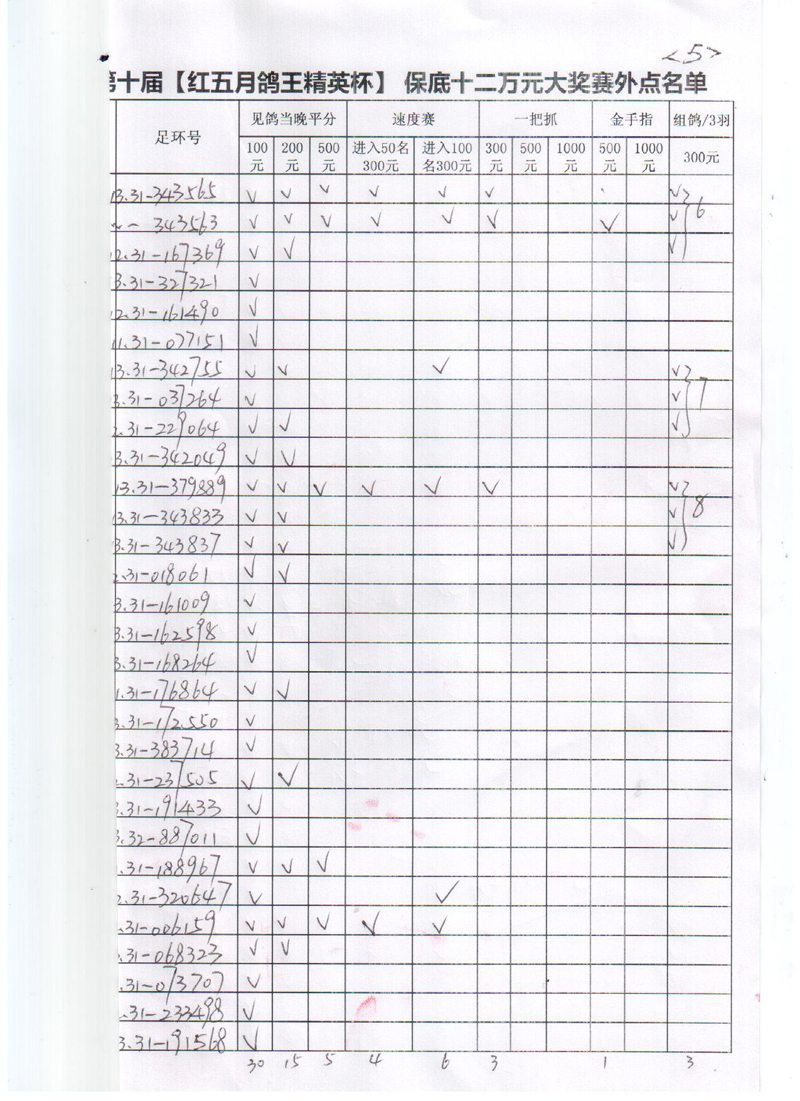 <5>
第十届【红五月鸽王精英杯】 保底十二万元大奖赛外点名单
足环号 见鸽当晚平分 速度赛 一把抓 金手指 组鸽/3羽
100元 200元 500元 进入50名300元 进入100名300元 300元 500元 1000元 500元 1000元 300元
13.31-343565 √ √ √ √ √ √ √
~ - 343563 √ √ √ √ √ √ √ √ 6
12.31-167369 √ √ √
3.31-327321 √
12.31-161490 √
11.31-077151 √
13.31-342755 √ √ √ √
3.31-037264 √ √ 7
2.31-229064 √ √ √
3.31-342049 √ √
13.31-379889 √ √ √ √ √ √ √
3.31-343833 √ √ √ 8
3.31-343837 √ √ √
2.31-018061 √ √
3.31-161009 √
3.31-162598 √
3.31-168264 √
1.31-176864 √ √
3.31-172550 √
3.31-383714 √
2.31-237505 √ √
3.31-191433 √
3.32-887011 √
.31-188967 √ √ √
2.31-320647 √ √
.31-006159 √ √ √ √ √
.31-068323 √ √
.31-073707 √
.31-233498 √
3.31-191568 √
30 15 5 4 6 3 1 3